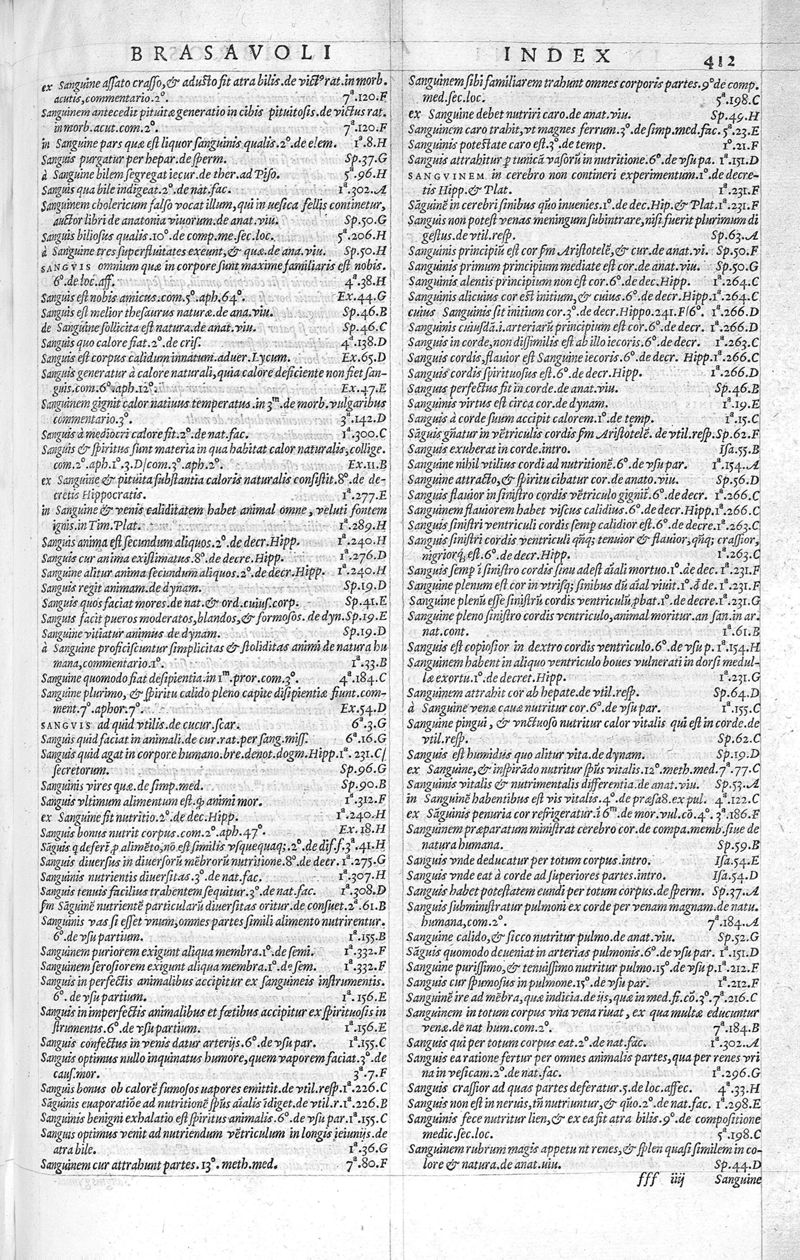 BRASAVOLI
INDEX
412
ex Sanguine assato crasso,& adusto fit atra bilis.de vict⁹ rat.in morb.
acutis,commentario.2°. 7ª.120.F
Sanguinem antecedit pituitæ generatio in cibis pituitosis.de victus rat.
in morb.acut.com.2°. 7ª.120.F
in Sanguine pars quæ est liquor sanguinis qualis.2°.de elem. 1ª.8.H
Sanguis purgatur per hepar.de sperm. Sp.37.G
à Sanguine bilem segregat iecur.de ther.ad Piso. 5ª.96.H
Sanguis qua bile indigeat.2°.de nat.fac. 1ª.302.A
Sanguinem cholericum falso vocat illum,qui in uesica fellis continetur,
auctor libri de anatomia viuorum.de anat.viu. Sp.50.G
Sanguis biliosus qualis.10°.de comp.me.sec.loc. 5ª.206.H
à Sanguine tres superfluitates exeunt,& quæ.de ana.viu. Sp.50.H
SANGVIS omnium quæ in corpore sunt maxime familiaris est nobis.
6°.de loc.aff. 4ª.38.H
Sanguis est nobis amicus.com.5°.aph.64°. Ex.44.G
Sanguis est melior thesaurus naturæ.de ana.viu. Sp.46.B
de Sanguine sollicita est natura.de anat.viu. Sp.46.C
Sanguis quo calore fiat.2°.de cris. 4ª.138.D
Sanguis est corpus calidum innatum.aduer.Lycum. Ex.65.D
Sanguis generatur à calore naturali,quia calore deficiente non fiet san-
guis.com.6°.aph.12°. Ex.47.E
Sanguinem gignit calor natiuus temperatus.in 3ᵐ.de morb.vulgaribus
commentario.3°. 3ª.142.D
Sanguis à mediocri calore fit.2°.de nat.fac. 1ª.300.C
Sanguis & spiritus sunt materia in qua habitat calor naturalis,collige.
com.2°.aph.1ª.3.D/com.3°.aph.2°. Ex.11.B
ex Sanguine & pituita substantia caloris naturalis consistit.8°.de de-
cretis Hippocratis. 1ª.277.E
in Sanguine & venis caliditatem habet animal omne, veluti fontem
ignis.in Tim.Plat. 1ª.289.H
Sanguis anima est secundum aliquos.2°.de decr.Hipp. 1ª.240.H
Sanguis cur anima existimatus.8°.de decre.Hipp. 1ª.276.D
Sanguine alitur anima secundum aliquos.2°.de decr.Hipp. 1ª.240.H
Sanguis regit animam.de dynam. Sp.19.D
Sanguis quos faciat mores.de nat.& ord.cuius.corp. Sp.41.E
Sanguis facit pueros moderatos,blandos,& formosos.de dyn.Sp.19.E
Sanguine vitiatur animus de dynam. Sp.19.D
à Sanguine proficiscuntur simplicitas & stoliditas animi de natura hu
mana,commentario.1°. 1ª.33.B
Sanguine quomodo fiat desipientia.in 1ᵐ.pror.com.3°. 4ª.184.C
Sanguine plurimo, & spiritu calido pleno capite disipientiæ fiunt.com-
ment.7°.aphor.7°. Ex.54.D
SANGVIS ad quid vtilis.de cucur.scar. 6ª.3.G
Sanguis quid faciat in animali.de cur.rat.per sang.miss. 6ª.16.G
Sanguis quid agat in corpore humano.bre.denot.dogm.Hipp.1ª.231.C/
secretorum. Sp.96.G
Sanguinis vires quæ.de simp.med. Sp.90.B
Sanguis vltimum alimentum est.q̃ animi mor. 1ª.312.F
ex Sanguine fit nutritio.2°.de dec.Hipp. 1ª.240.H
Sanguis bonus nutrit corpus.com.2°.aph.47°. Ex.18.H
Sãguis q deferĩ p alimẽto,nõ est similis vsquequaq;.2°.de dif.f.3ª.41.H
Sanguis diuersus in diuersorũ mẽbrorũ nutritione.8°.de decr.1ª.275.G
Sanguinis nutrientis diuersitas.3°.de nat.fac. 1ª.307.H
Sanguis tenuis facilius trahentem sequitur.3°.de nat.fac. 1ª.308.D
s̃m Sãguinẽ nutrientẽ particularũ diuersitas oritur.de consuet.2ª.61.B
Sanguinis vas si esset vnum,omnes partes simili alimento nutrirentur.
6°.de vsu partium. 1ª.155.B
Sanguinem puriorem exigunt aliqua membra.1°.de semi. 1ª.332.F
Sanguinem serosiorem exigunt aliqua membra.1°.de sem. 1ª.332.F
Sanguis in perfectis animalibus accipitur ex sanguineis instrumentis.
6°.de vsu partium. 1ª.156.E
Sanguis in imperfectis animalibus et fœtibus accipitur ex spirituosis in
strumentis.6°.de vsu partium. 1ª.156.E
Sanguis confectus in venis datur arterijs.6°.de vsu par. 1ª.155.C
Sanguis optimus nullo inquinatus humore,quem vaporem faciat.3°.de
caus.mor. 3ª.7.F
Sanguis bonus ob calorẽ fumosos uapores emittit.de vtil.resp.1ª.226.C
Sãguinis euaporatiõe ad nutritionẽ sp̃us aĩalis ĩdiget.de vtil.r.1ª.226.B
Sanguinis benigni exhalatio est spiritus animalis.6°.de vsu par.1ª.155.C
Sanguis optimus venit ad nutriendum vẽtriculum in longis ieiunijs.de
atra bile. 1ª.36.G
Sanguinem cur attrahunt partes.13°.meth.med. 7ª.80.F
Sanguinem sibi familiarem trahunt omnes corporis partes.9°de comp.
med.sec.loc. 5ª.198.C
ex Sanguine debet nutriri caro.de anat.viu. Sp.49.H
Sanguinem caro trahit,vt magnes ferrum.3°.de simp.med.fac. 5ª.23.E
Sanguinis potestate caro est.3°.de temp. 1ª.21.F
Sanguis attrahitur p tunicã vasorũ in nutritione.6°.de vsu pa. 1ª.151.D
SANGVINEM in cerebro non contineri experimentum.1°.de decre-
tis Hipp.& Plat. 1ª.231.F
Sãguinẽ in cerebri sinibus quo inuenies.1°.de dec.Hip.& Plat.1ª.231.F
Sanguis non potest venas meningum subintrare,nisi fuerit plurimum di
gestus.de vtil.resp. Sp.63.A
Sanguinis principiũ est cor s̃m Aristotelẽ,& cur.de anat.vi. Sp.50.F
Sanguinis primum principium mediate est cor.de anat.viu. Sp.50.G
Sanguinis alentis principium non est cor.6°.de dec.Hipp. 1ª.264.C
Sanguinis alicuius cor est initium,& cuius.6°.de decr.Hipp.1ª.264.C
cuius Sanguinis sit initium cor.3°.de decr.Hippo.241.F/6°. 1ª.266.D
Sanguinis cuiusdã.i.arteriarũ principium est cor.6°.de decr. 1ª.266.D
Sanguis in corde,non dissimilis est ab illo iecoris.6°.de decr. 1ª.263.C
Sanguis cordis,flauior est Sanguine iecoris.6°.de decr. Hipp.1ª.266.C
Sanguis cordis spirituosus est.6°.de decr.Hipp. 1ª.266.D
Sanguis perfectus fit in corde.de anat.viu. Sp.46.B
Sanguinis virtus est circa cor.de dynam. 1ª.19.E
Sanguis à corde suum accipit calorem.1°.de temp. 1ª.15.C
Sãguis gñatur in vẽtriculis cordis s̃m Aristotelẽ. de vtil.resp.Sp.62.F
Sanguis exuberat in corde.intro. Isa.55.B
Sanguine nihil vtilius cordi ad nutritionẽ.6°.de vsu par. 1ª.154.A
Sanguine attracto,& spiritu cibatur cor.de anato.viu. Sp.56.D
Sanguis flauior in sinistro cordis vẽtriculo gignit̃.6°.de decr. 1ª.266.C
Sanguinem flauiorem habet viscus calidius.6°.de decr.Hipp.1ª.266.C
Sanguis sinistri ventriculi cordis semp calidior est.6°.de decre.1ª.263.C
Sanguis sinistri cordis ventriculi qñq; tenuior & flauior,qñq; crassior,
nigriorq́,est.6°.de decr.Hipp. 1ª.263.C
Sanguis semp ĩ sinistro cordis sinu adest aĩali mortuo.1°.de dec. 1ª.231.F
Sanguine plenum est cor in vtrisq; sinibus dũ aĩal viuit.1°.d̃ de. 1ª.231.F
Sanguine plenũ esse sinistrũ cordis ventriculũ pbat.1°.de decre.1ª.231.G
Sanguine pleno sinistro cordis ventriculo,animal moritur.an san.in ar.
nat.cont. 1ª.61.B
Sanguis est copiosior in dextro cordis ventriculo.6°.de vsu p. 1ª.154.H
Sanguinem habent in aliquo ventriculo boues vulnerati in dorsi medul-
læ exortu.1°.de decret.Hipp. 1ª.231.G
Sanguinem attrahit cor ab hepate.de vtil.resp. Sp.64.D
à Sanguine venæ cauæ nutritur cor.6°.de vsu par. 1ª.155.C
Sanguine pingui, & vnctuoso nutritur calor vitalis qui est in corde.de
vtil.resp. Sp.62.C
Sanguis est humidus quo alitur vita.de dynam. Sp.19.D
ex Sanguine,& inspirãdo nutritur sp̃us vitalis.12°.meth.med.7ª.77.C
Sanguinis vitalis & nutrimentalis differentia.de anat.viu. Sp.53.A
in Sanguinẽ habentibus est vis vitalis.4°.de præsa8.ex pul. 4ª.122.C
ex Sãguinis penuria cor refrigeratur.ĩ 6ᵐ.de mor.vul.cõ.4°. 3ª.186.F
Sanguinem præparatum ministrat cerebro cor.de compa.memb.siue de
natura humana. Sp.59.B
Sanguis vnde deducatur per totum corpus.intro. Isa.54.E
Sanguis vnde eat à corde ad superiores partes.intro. Isa.54.D
Sanguis habet potestatem eundi per totum corpus.de sperm. Sp.37.A
Sanguis subministratur pulmoni ex corde per venam magnam.de natu.
humana,com.2°. 7ª.184.A
Sanguine calido,& sicco nutritur pulmo.de anat.viu. Sp.52.G
Sãguis quomodo deueniat in arterias pulmonis.6°.de vsu par. 1ª.151.D
Sanguine purissimo,& tenuissimo nutritur pulmo.15°.de vsu p.1ª.212.F
Sanguis cur spumosus in pulmone.15°.de vsu par. 1ª.212.F
Sanguinẽ ire ad mẽbra,quæ indicia.de ijs,quæ in med.fi.cõ.3°.7ª.216.C
Sanguinem in totum corpus vna vena riuat, ex qua multæ educuntur
venæ.de nat hum.com.2°. 7ª.184.B
Sanguis qui per totum corpus eat.2°.de nat.fac. 1ª.302.A
Sanguis ea ratione fertur per omnes animalis partes,qua per renes vri
na in vesicam.2°.de nat.fac. 1ª.296.G
Sanguis crassior ad quas partes deferatur.5.de loc.affec. 4ª.33.H
Sanguis non est in neruis,tñ nutriuntur,& quo.2°.de nat.fac. 1ª.298.E
Sanguinis fece nutritur lien,& ex ea fit atra bilis.9°.de compositione
medic.sec.loc. 5ª.198.C
Sanguinem rubrum magis appetunt renes,& splen quasi similem in co-
lore & natura.de anat.uiu. Sp.44.D
fff iiij Sanguine